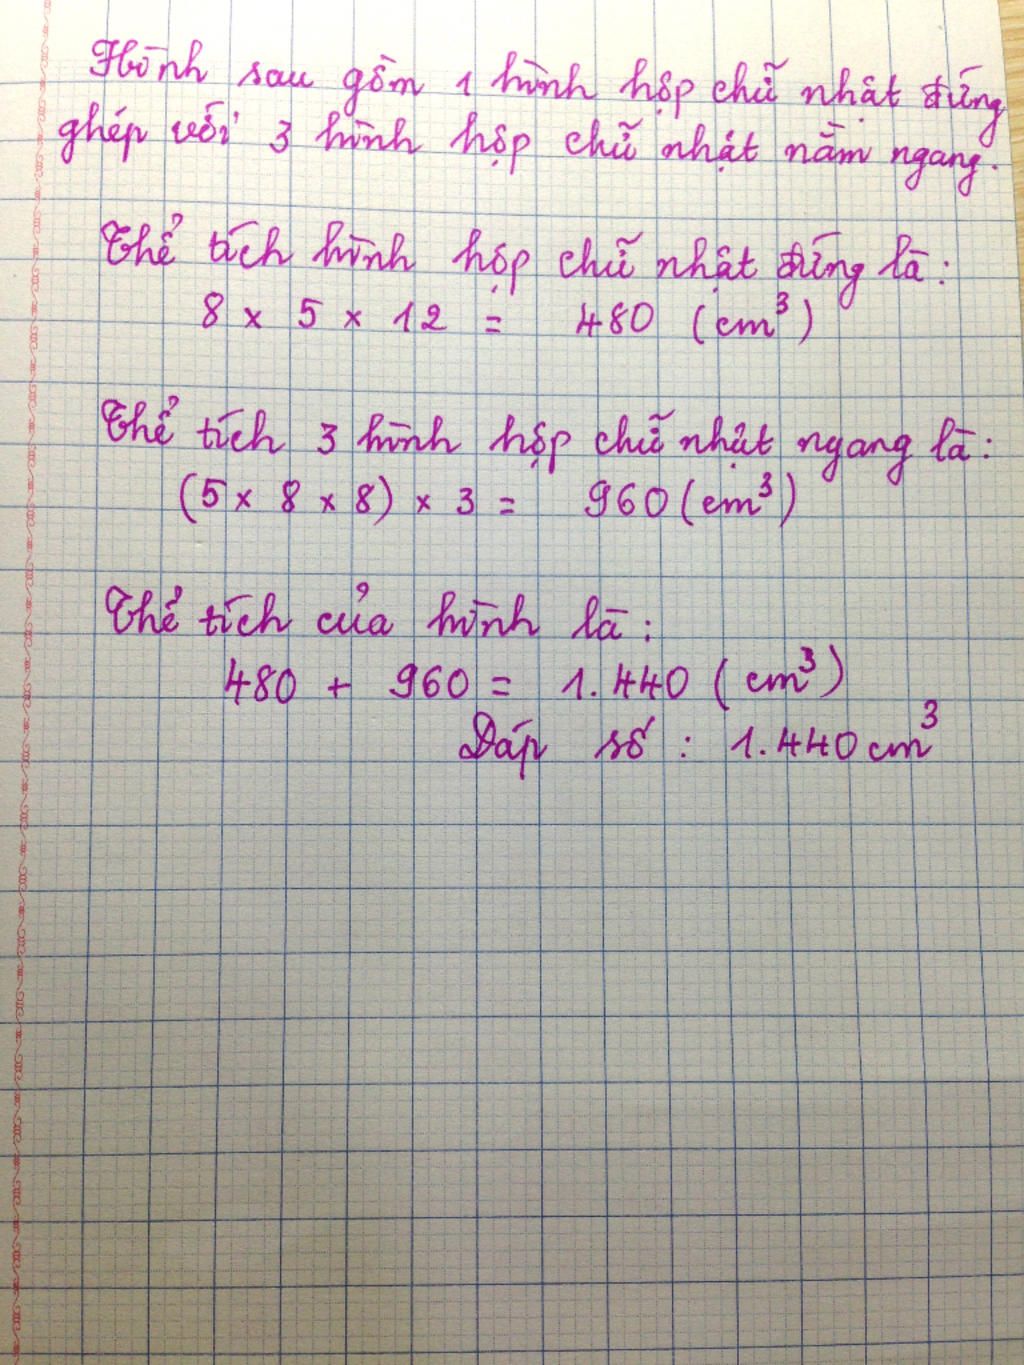 Hình sau gồm 1 hình hộp chữ nhật đứng
ghép với 3 hình hộp chữ nhật nằm ngang.
Thể tích hình hộp chữ nhật đứng là:
8 × 5 × 12 = 480 (cm³)
Thể tích 3 hình hộp chữ nhật ngang là:
(5 × 8 × 8) × 3 = 960 (cm³)
Thể tích của hình là:
480 + 960 = 1.440 (cm³)
Đáp số : 1.440 cm³